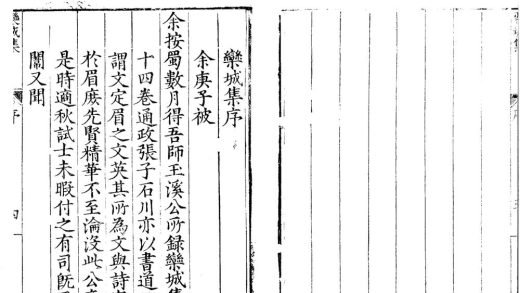 欒城集序
余庚子被
余按蜀數月得吾師王溪公所録欒城集
十四卷通政張子石川亦以書道
謂文定眉之文英其所為文與詩
於眉庶先賢精華不至淪没此公
是時適秋試士未暇付之有司旣
闈又聞
欒城集
序
四